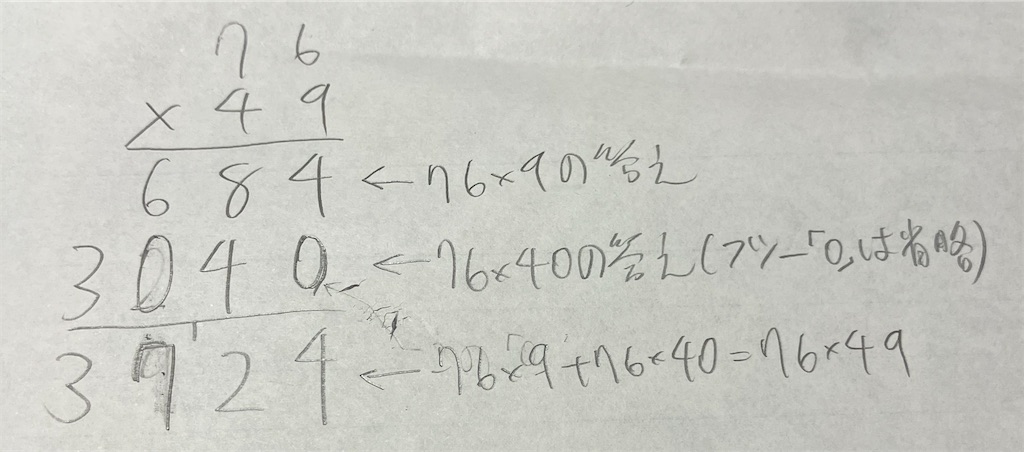 76
× 49
684 ← 76×9の答え
3040 ← 76×40の答え(フツー「0」は省略)
1
3724 ← 76×9+76×40=76×49